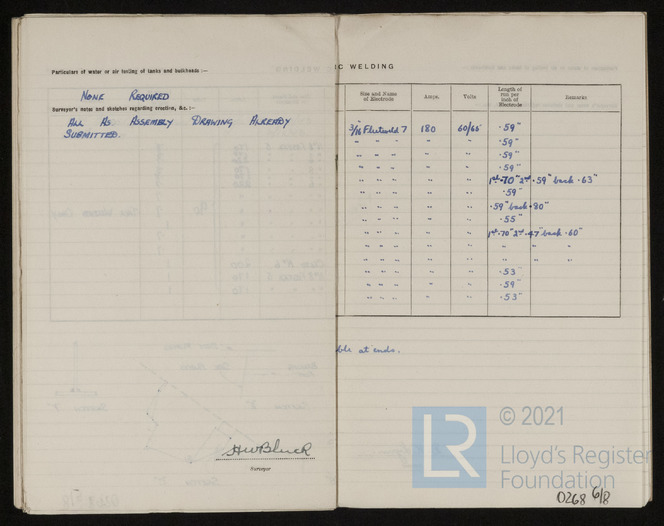 Particulars of water or air testing of tanks and bulkheads :—
NONE REQUIRED
Surveyor's notes and sketches regarding erection, &c. :—
ALL AS ASSEMBLY DRAWING ALREADY
SUBMITTED.
Surveyor
IC WELDING
Size and Name of Electrode Amps. Volts Length of run per inch of Electrode Remarks
3/16" Fleetweld 7 180 60/65 .59"
" " " " " .59"
" " " " " .59"
" " " " " .59"
" " " " " 1st .70" 2nd .59" back .63"
" " " " " .59"
" " " " " .59" back .80"
" " " " " .55"
" " " " " 1st .70" 2nd .47" back .60"
" " " " " " " "
" " " " " " " "
" " " " " .53"
" " " " " .59"
" " " " " .53"
ble at ends.
LR
© 2021
Lloyd's Register
Foundation
0268 6/8